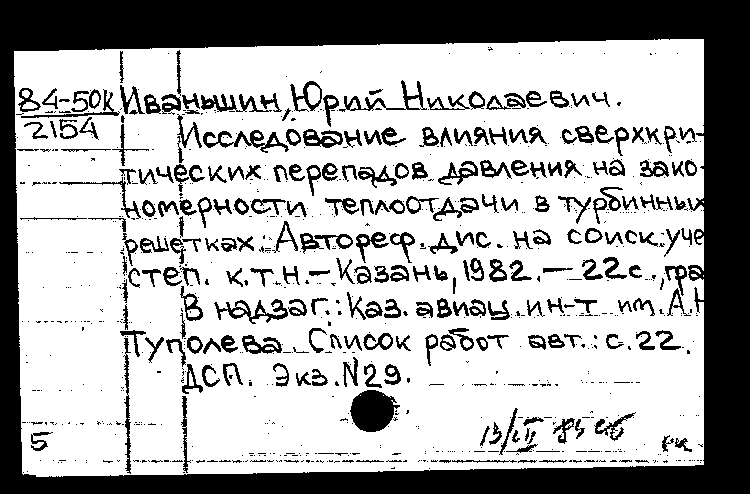 84-50к Иваньшин, Юрий Николаевич.
2154 Исследование влияния сверхкри-
тических перепадов давления на зако-
номерности теплоотдачи в турбинных
решетках: Автореф. дис. на соиск. уче
степ. к.т.н. - Казань, 1982. - 22 с., гра
В надзаг.: Каз. авиац. ин-т им. А.Н
Туполева. Список работ авт.: с. 22.
ДСП. Экз. N29.
5